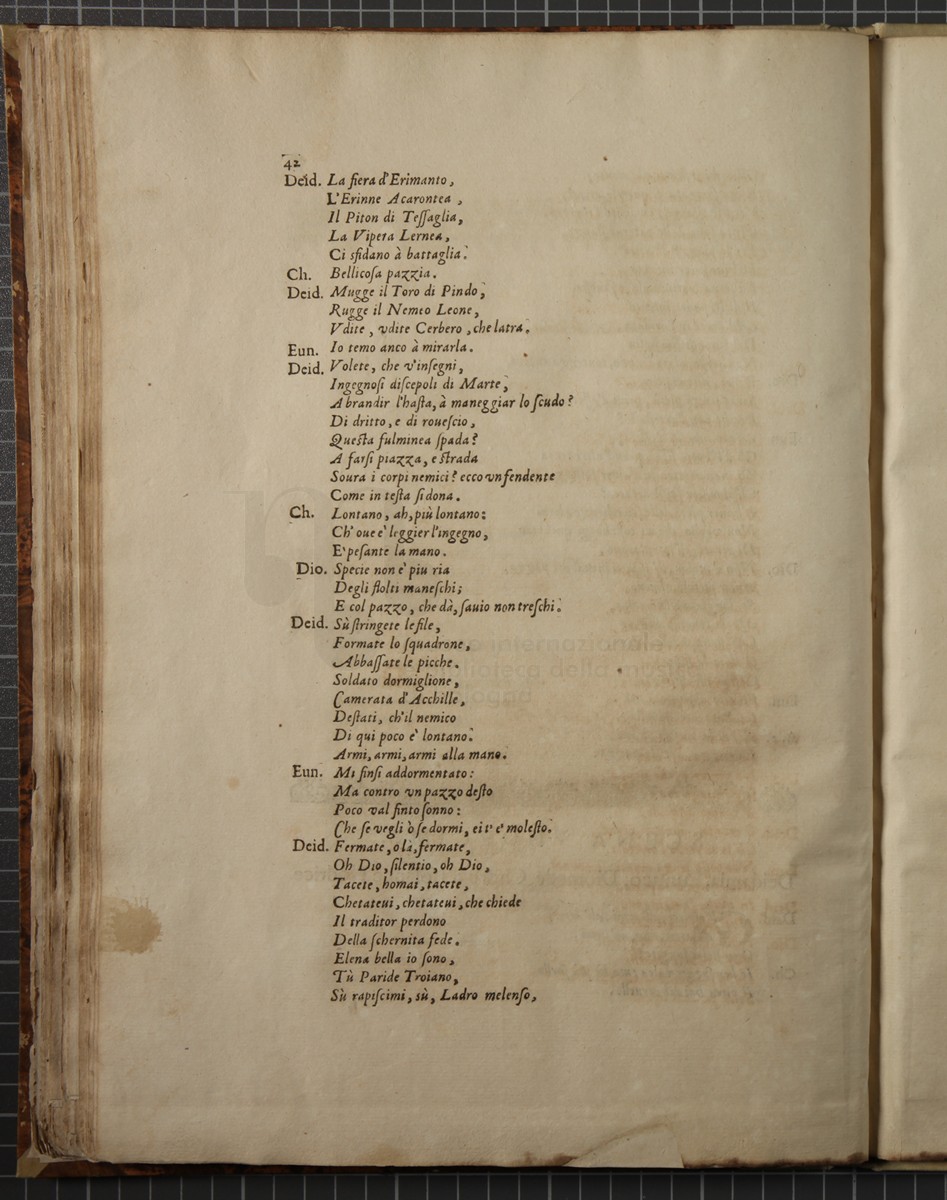 42
Deid. La fiera d'Erimanto,
L'Erinne Acarontea,
Il Piton di Teſſaglia,
La Vipera Lernea,
Ci sfidano à battaglia.
Ch. Bellicoſa pazzia.
Deid. Mugge il Toro di Pindo,
Rugge il Nemeo Leone,
Vdite, vdite Cerbero, che latra.
Eun. Io temo anco à mirarla.
Deid. Volete, che v'inſegni,
Ingegnoſi diſcepoli di Marte,
A brandir l'haſta, à maneggiar lo ſcudo?
Di dritto, e di roueſcio,
Queſta fulminea ſpada?
A farſi piazza, e ſtrada
Soura i corpi nemici? ecco vn fendente
Come in teſta ſi dona.
Ch. Lontano, ah, più lontano:
Ch' oue e' leggier l'ingegno,
E' peſante la mano.
Dio. Specie non e' piu ria
Degli ſtolti maneſchi;
E col pazzo, che dà, ſauio non treſchi.
Deid. Sù ſtringete le file,
Formate lo ſquadrone,
Abbaſſate le picche.
Soldato dormiglione,
Camerata d'Acchille,
Deſtati, ch'il nemico
Di qui poco e' lontano.
Armi, armi, armi alla mano.
Eun. Mi finſi addormentato:
Ma contro vn pazzo deſto
Poco val finto ſonno:
Che ſe vegli ò ſe dormi, ei t' e' moleſto.
Deid. Fermate, o là, fermate,
Oh Dio, ſilentio, oh Dio,
Tacete, homai, tacete,
Chetateui, chetateui, che chiede
Il traditor perdono
Della ſchernita fede.
Elena bella io ſono,
Tù Paride Troiano,
Sù rapiſcimi, sù, Ladro melenſo,